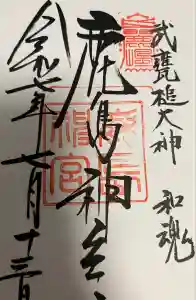 武甕槌大神 和魂
鹿島神宮
令和七年七月十三日